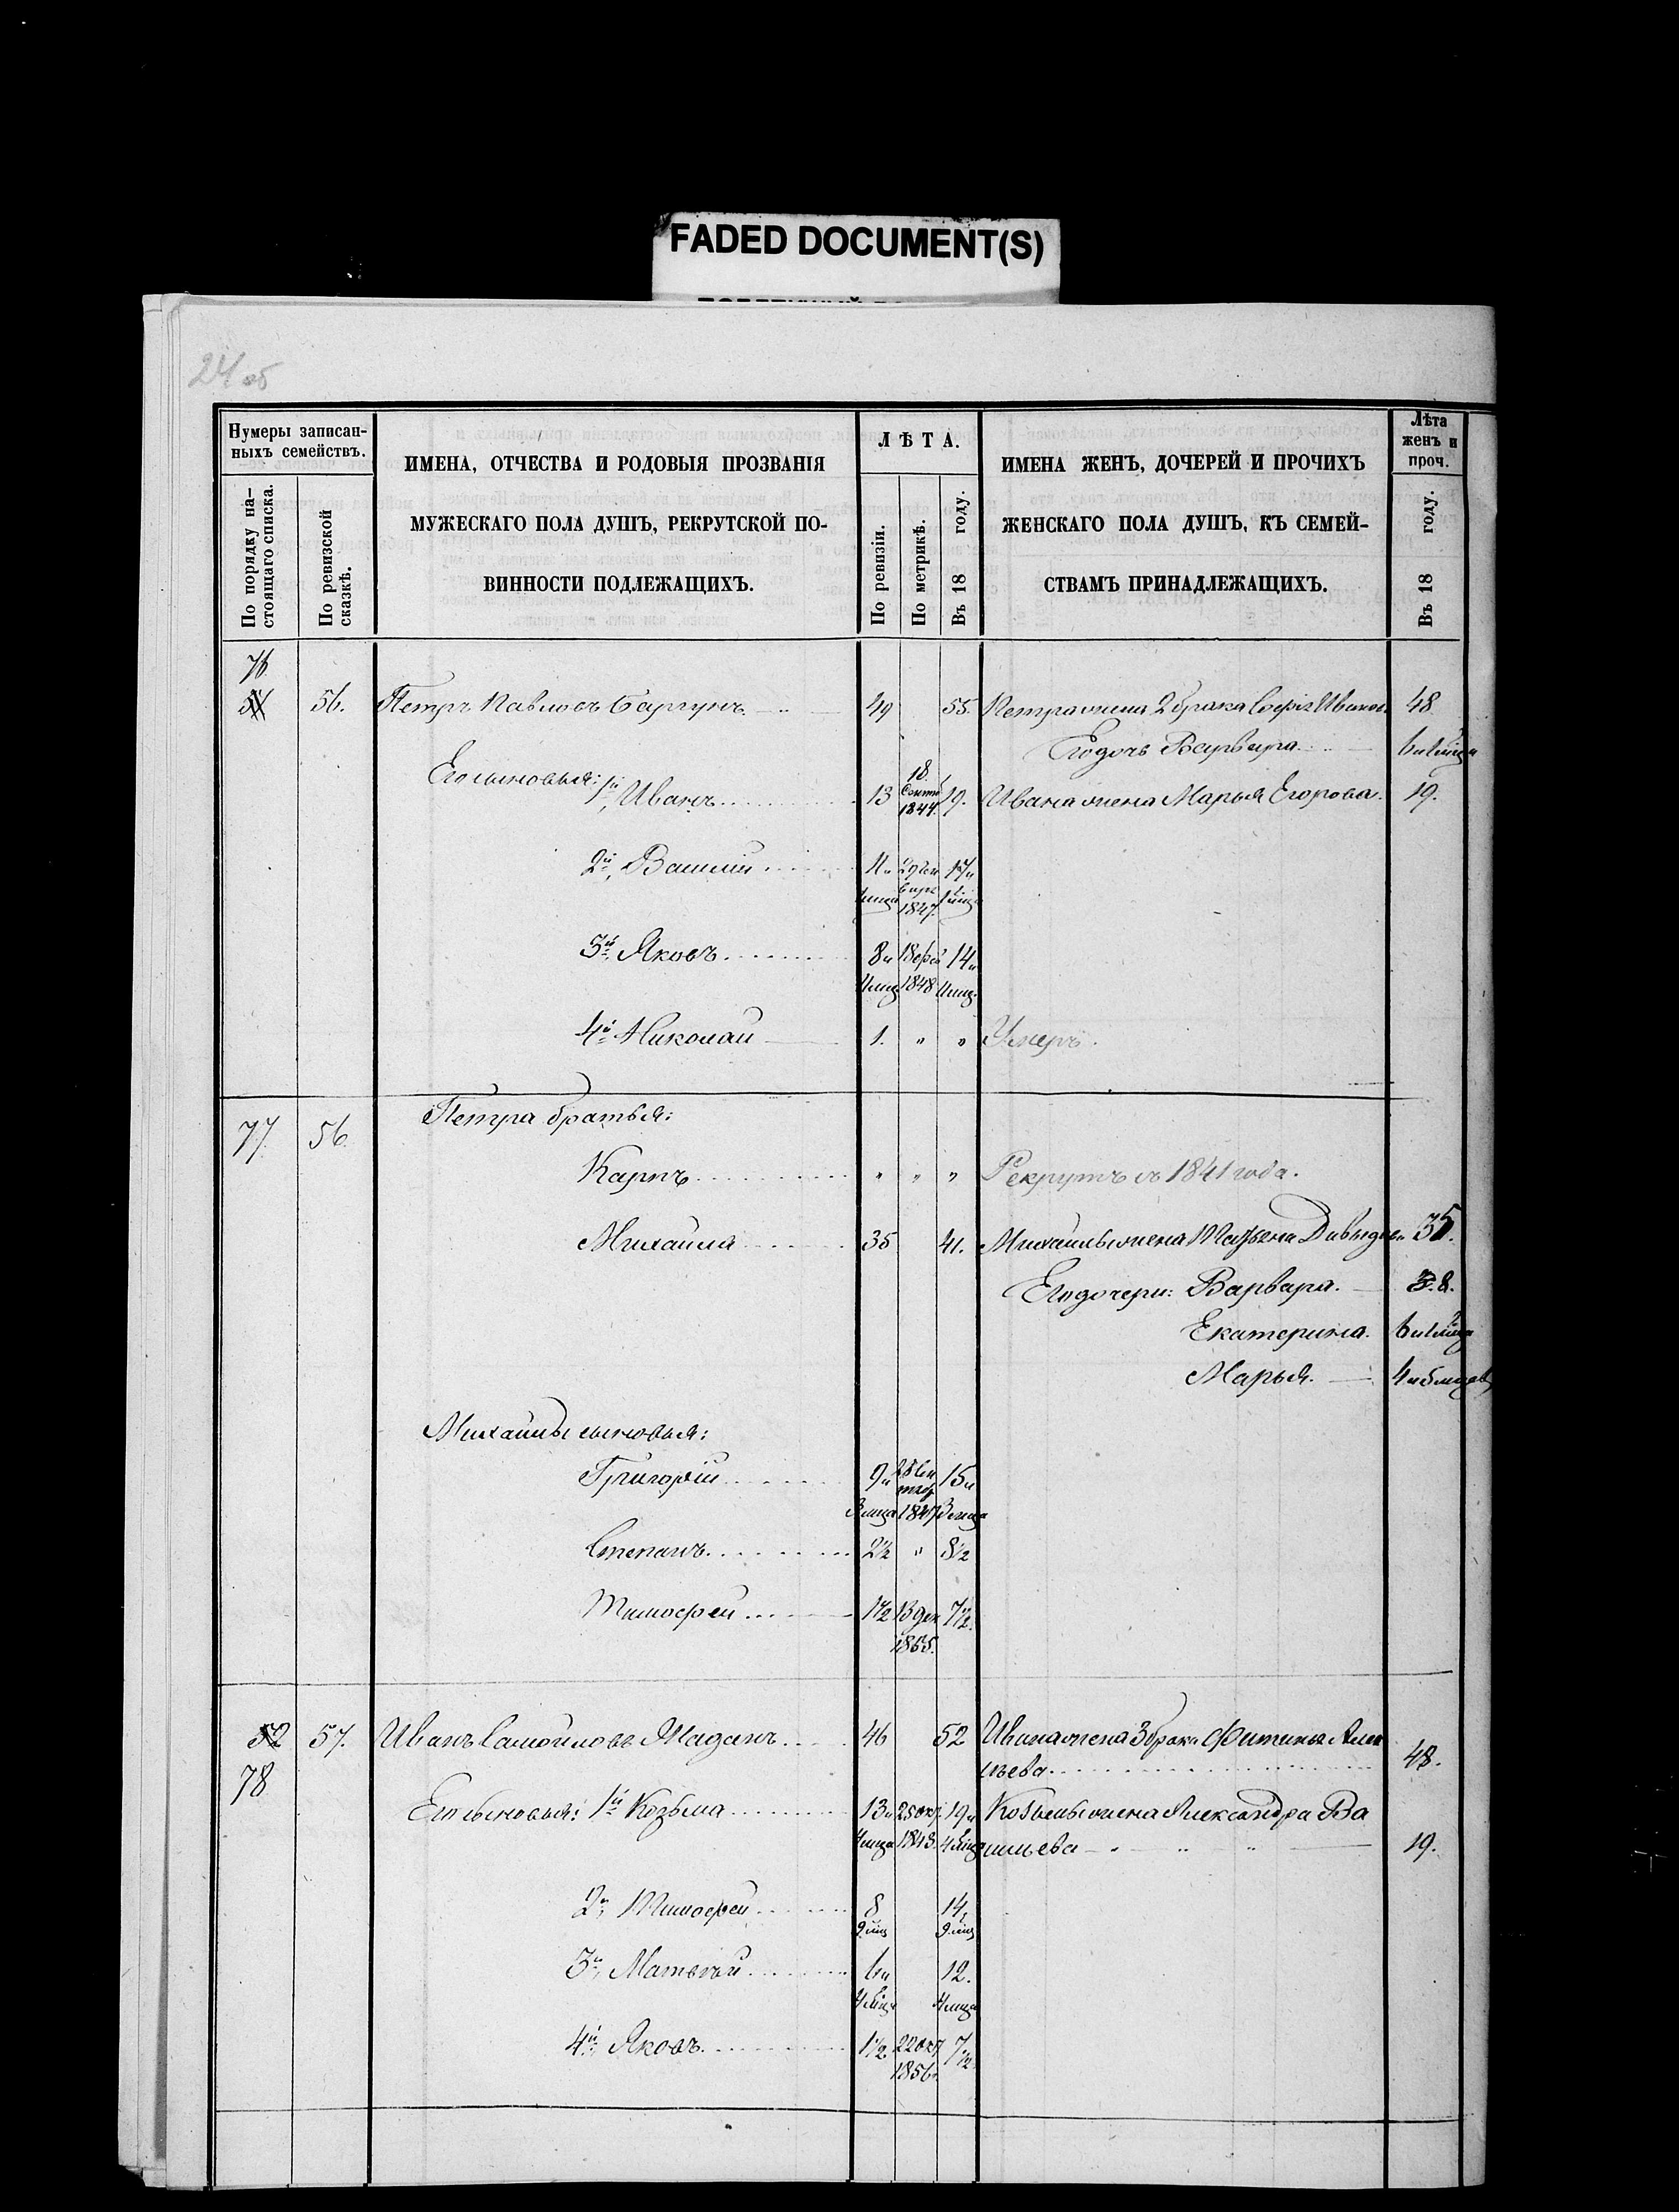 FADED DOCUMENT(S)
24 об
Нумеры записан-
ныхъ семействъ.
По порядку на-
стоящаго списка.
По ревизской
сказкѣ.
ИМЕНА, ОТЧЕСТВА И РОДОВЫЯ ПРОЗВАНІЯ
МУЖЕСКАГО ПОЛА ДУШЪ, РЕКРУТСКОЙ ПО-
ВИННОСТИ ПОДЛЕЖАЩИХЪ.
ЛѢТА.
По ревизіи.
По метрикѣ.
Въ 18 году.
ИМЕНА ЖЕНЪ, ДОЧЕРЕЙ И ПРОЧИХЪ
ЖЕНСКАГО ПОЛА ДУШЪ, КЪ СЕМЕЙ-
СТВАМЪ ПРИНАДЛЕЖАЩИХЪ.
Лѣта
женъ и
проч.
Въ 18 году.
76
56. Петръ Павловъ 49 55. Петра жена 2 брака Софія Иванов. 48
Его дочь Варвара
Его сыновья: 1й, Иванъ 13 18 Сентя 1844. 19. Ивана жена Марья Егорова. 19.
2й, Василій 11 и 29 1847. 17 и
3й, Яковъ 8 и 1848 14 и
4й Николай 1. " " Умеръ.
77 56 Петра братья:
Карпъ " " " Рекрутъ съ 1841 года.
Михайла 35 41. Михайлы жена Татьяна Давыдов 35.
Его дочери: Варвара. 8.
Екатерина.
Марья. 4 и 5 месяцев
Михайлы сыновья:
Григорій 9 и 1847 15 и
Степанъ 2½ " 8½
Тимофей 1½ 13 дек 7½.
52 57. Иванъ Самойловъ Маданъ 46 52 Ивана жена 3 брака Фитинья Алек
сѣева 48.
78
Его сыновья: 1й Козьма 13 и 25 окт 1843. 19 и Козьмы жена Александра Ва
сильева 19.
2й, Тимофей 8 14
3й, Матвѣй 6 и 12.
4й, Яковъ 1½ 22 окт 1856. 7½